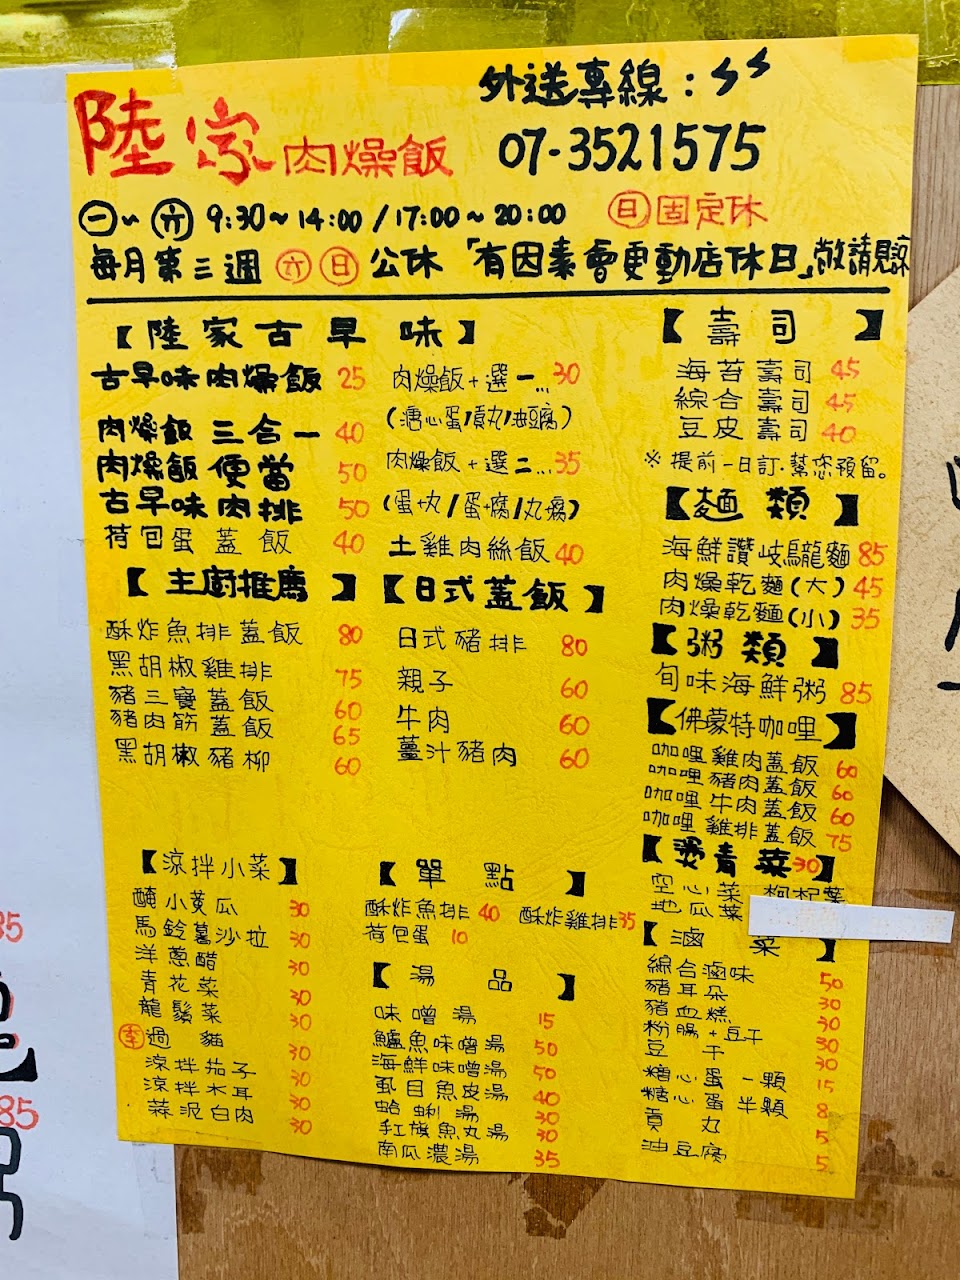 外送專線:
陸家肉燥飯
07-3521575
㊀~㊅ 9:30~14:00/17:00~20:00 ㊐固定休
每月第三週㊅㊐公休「有因素會更動店休日」敬請見諒
【陸家古早味】
古早味肉燥飯 25
肉燥飯三合一 40
肉燥飯便當 50
古早味肉排 50
荷包蛋蓋飯 40
肉燥飯+選一... 30
(溏心蛋/貢丸/油豆腐)
肉燥飯+選二...35
(蛋+丸/蛋+腐/丸+腐)
土雞肉絲飯 40
【主廚推薦】
酥炸魚排蓋飯 80
黑胡椒雞排 75
豬三寶蓋飯 60
豬肉筋蓋飯 65
黑胡椒豬柳 60
【日式蓋飯】
日式豬排 80
親子 60
牛肉 60
薑汁豬肉 60
【壽司】
海苔壽司 45
綜合壽司 45
豆皮壽司 40
※提前一日訂.幫您預留。
【麵類】
海鮮讚岐烏龍麵 85
肉燥乾麵(大) 45
肉燥乾麵(小) 35
【粥類】
旬味海鮮粥 85
【佛蒙特咖哩】
咖哩雞肉蓋飯 60
咖哩豬肉蓋飯 60
咖哩牛肉蓋飯 60
咖哩雞排蓋飯 75
【燙青菜30】
空心菜 枸杞葉
地瓜葉
【涼拌小菜】
醃小黃瓜 30
馬鈴薯沙拉 30
洋蔥醋 30
青花菜 30
龍鬚菜 30
㊍過貓 30
涼拌茄子 30
涼拌木耳 30
蒜泥白肉 30
【單點】
酥炸魚排 40 酥炸雞排 35
荷包蛋 10
【湯品】
味噌湯 15
鱸魚味噌湯 50
海鮮味噌湯 50
虱目魚皮湯 40
蛤蜊湯 30
紅旗魚丸湯 30
南瓜濃湯 35
【滷菜】
綜合滷味 50
豬耳朵 30
豬血糕 30
粉腸+豆干 30
豆干 30
糖心蛋一顆 15
糖心蛋半顆 8
貢丸 5
油豆腐 5
85
85